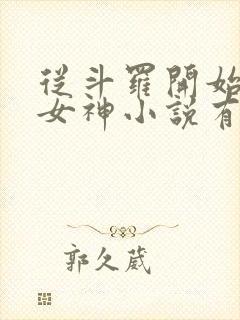 从斗羅開始
女神小說有
郭久葳